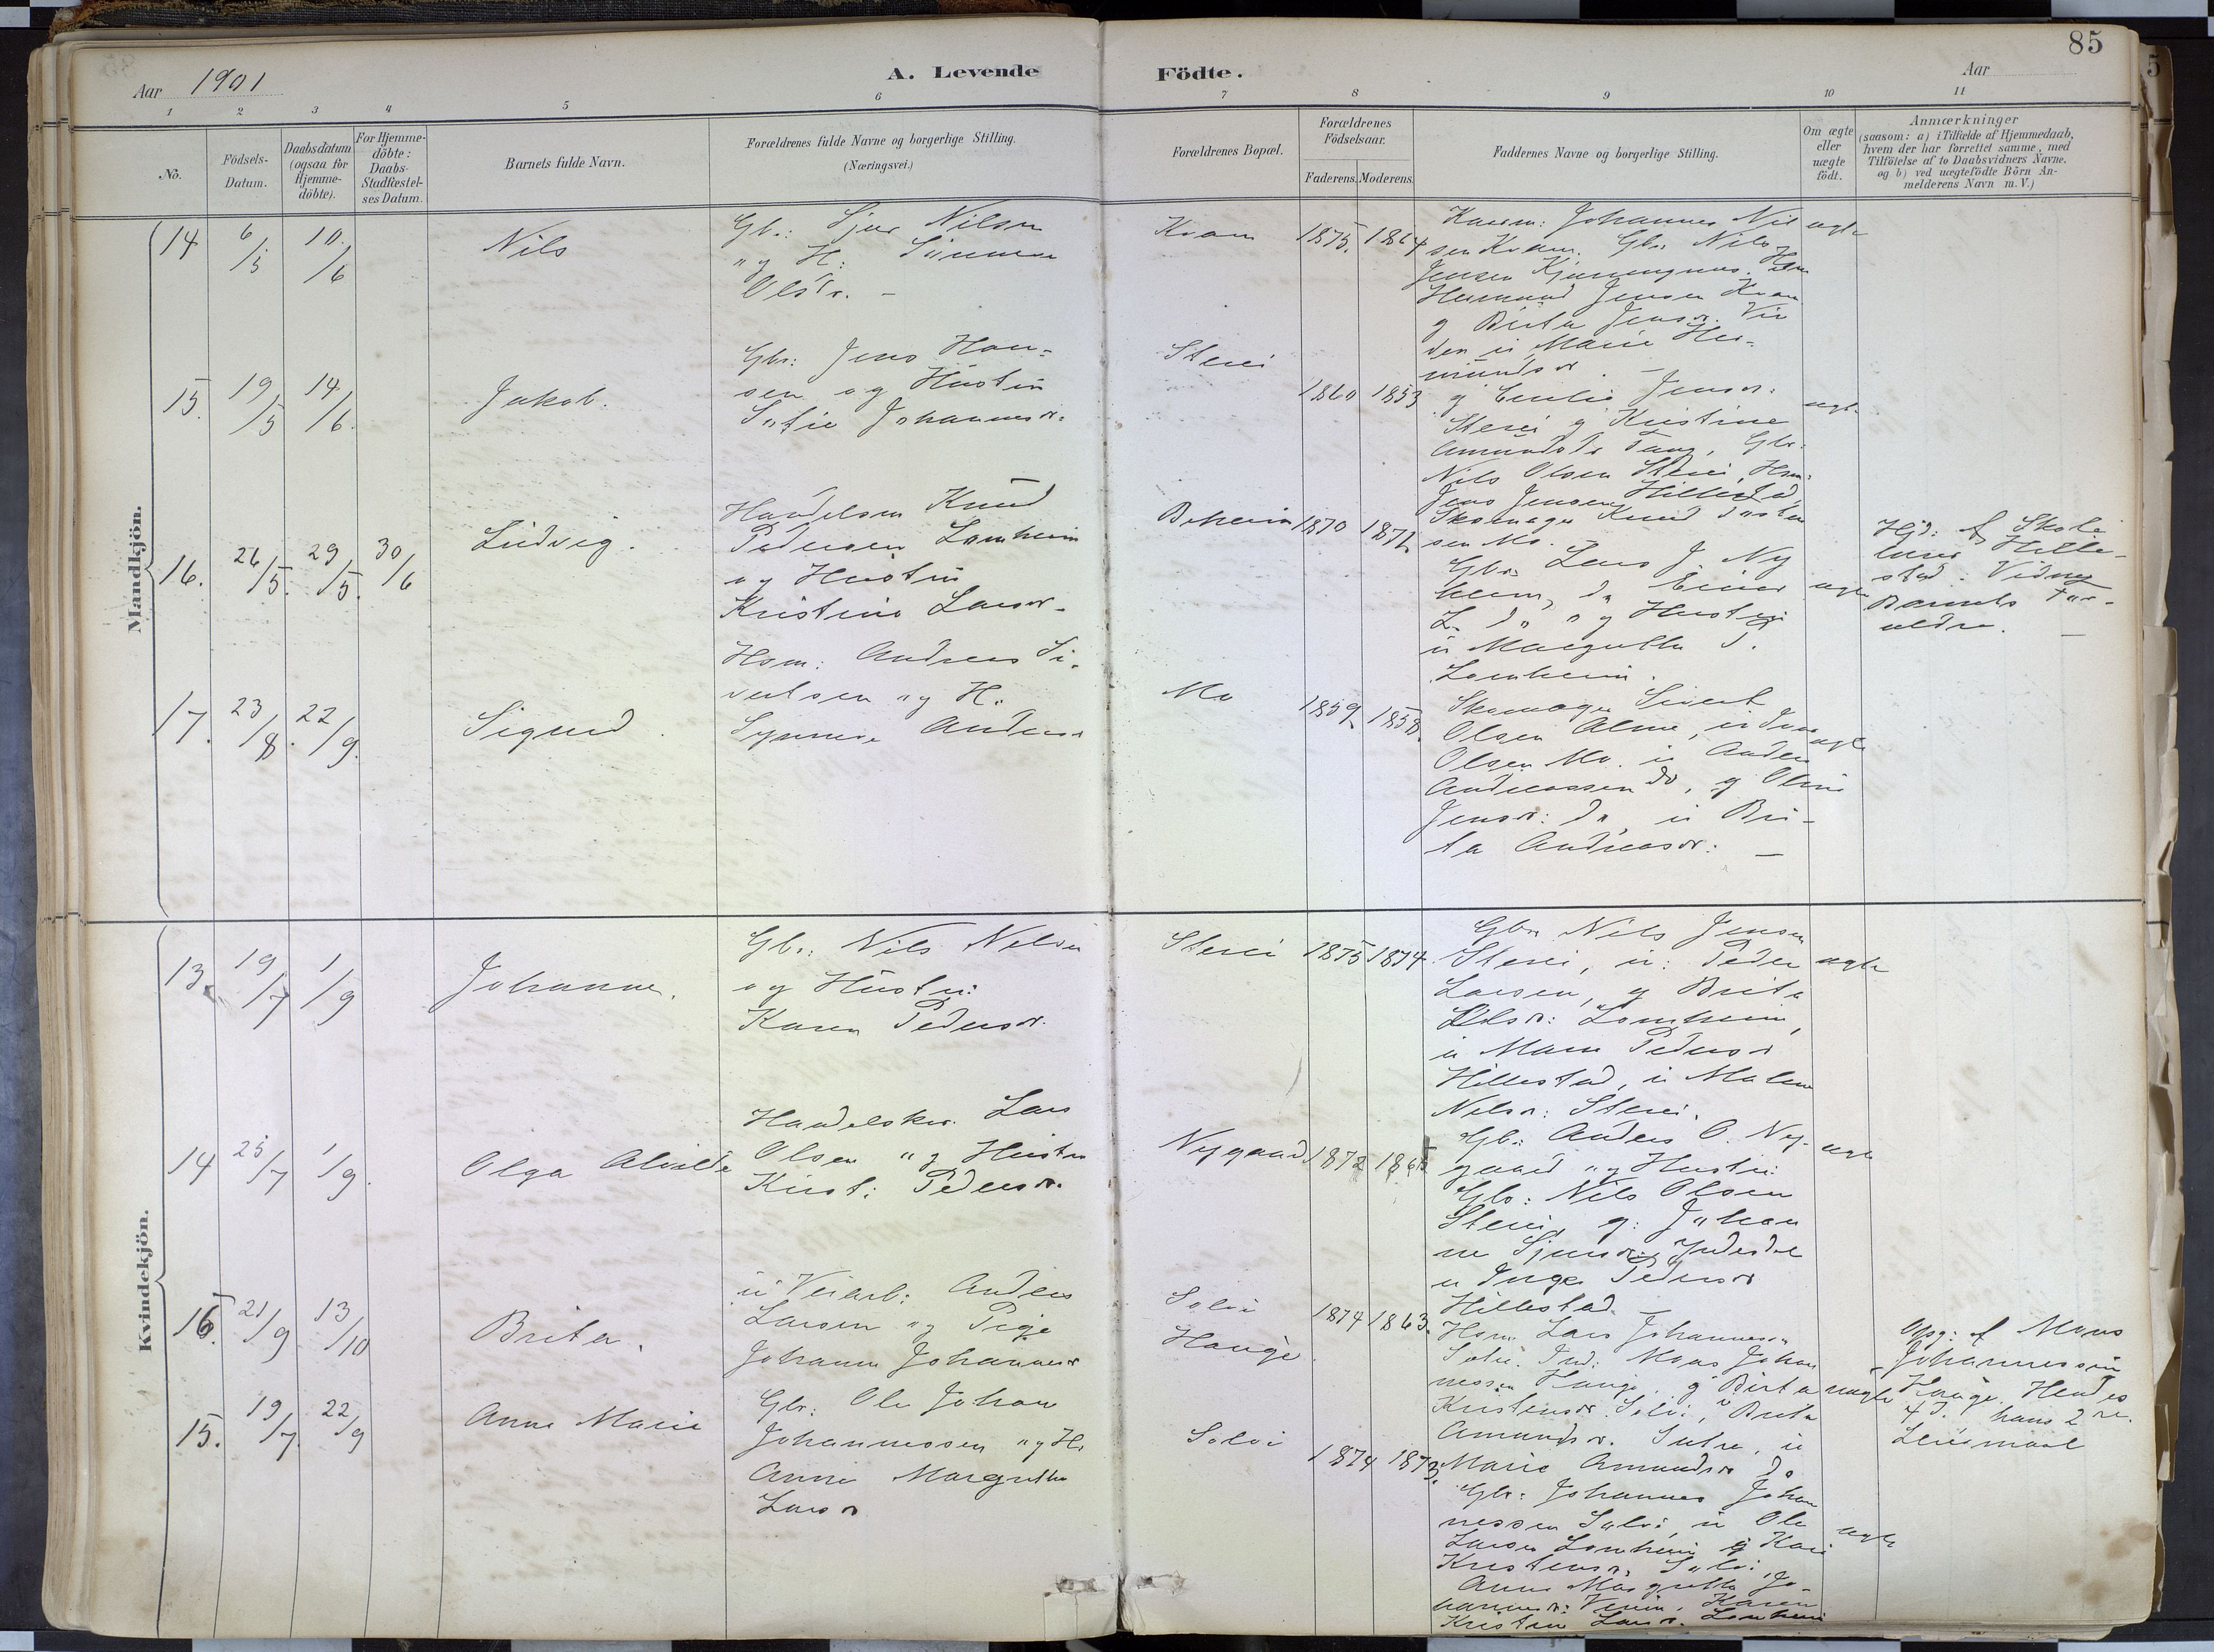 85
Aar 1901
A. Levende
Födte.
Aar
1 2 3 4 5 6 7 8 9 10 11
No.
Födsels-Datum.
Daabsdatum (ogsaa for Hjemmedöbte).
For Hjemmedöbte: Daabs-Stadfæstelses Datum.
Barnets fulde Navn.
Forældrenes fulde Navne og borgerlige Stilling.
(Næringsvei.)
Forældrenes Bopæl.
Forældrenes Födselsaar.
Faderens. Moderens.
Faddernes Navne og borgerlige Stilling.
Om ægte eller uægte födt.
Anmærkninger
(saasom: a) i Tilfælde af Hjemmedaab,
hvem der har forrettet samme, med
Tilföielse af to Daabsvidners Navne.
og b) ved uægtefödte Börn An-
melderens Navn m. V.)
Mandkjön.
14 6/5 10/6
Nils
Gbr: Sjur Nilsen
og H:
Olsdr. -
Kvam
1875. 1864
Johannes Nil
sen Kvam. Gbr. Nils
Jensen
Hermund Jensen Kvam
g Birta Jensdr.
Marie Her-
mundsdr. -
ægte
15. 19/5 14/6.
Jakob.
Gbr: Jens Han-
sen og Hustru
Johannesdr.
Sterei
1860 1853
g Jensdr:
Sterei g Kristine
Amundsdr Tang, Gbr:
Nils Olsen Sterei, Hsm:
Jens Jensen Hillestad
ægte
16. 26/5. 29/5. 30/6
Ludvig.
Handelsm Knud
Pedersen Lomheim
og Hustru
Kristine Larsdr.
Beheim
1870 1872
Skomager Knud
sen Mo.
Gbr. Lars J. Ny
g Hustru
u Margretha
Lomheim.
ægte
Hjd: af Skole-
lærer Hille-
stad. Vidner
Barnets For-
ældre. -
17. 23/8. 22/9.
Sigurd.
Hsm: Andreas Si-
vertsen og H.
Synneve Andersdr
Mo
1859 1858.
Skomager Sivert
Olsen Alme, u Jens
Olsen Mo. u Anders
Andreassen do, g Oline
Jensdr: do, u Bri-
ta Andreasdr: -
ægte
Kvindekjön.
13. 19/7 1/9
Johanne.
Gbr: Nils Nilsen
og Hustru
Karen Pedersdr.
Sterei
1875 1874.
Gbr Nils Jensen
Sterei, u: Peder
Larsen, g Brita
Olsdr: Lomheim,
u Mari Pedersdr
Hillestad, u Malene
Nilsdr: Sterei.
ægte
14 25/7 1/9.
Olga Alvilde
Handelskar. Lars
Olsen og Hustru
Kirsti Pedersdr.
Nygaard
1872
Gbr: Anders O. Ny-
gaard og Hustru
Gbr: Nils Olsen
Sterei, g: Johan
ne Sjursdr:
u Inger Pedersdr
Hillestad. -
ægte
16. 21/9 13/10
Brita.
u Veiarb: Anders
Larsen og Pige
Johanne Johannesdr
Solvi
Hauge.
1874 1863.
Hsm. Lars Johannesen
Mons Johan
nessen Hauge, g Birta
Kristensdr. Solvi, Brita
Amundsdr. u
Marie Amundsdr do
uægte
Opg: af Mons
Johannessen
Hauge. Hendes
4d. hans 2re.
Leiermaal
15. 19/7. 22/9
Anne Marie
Gbr: Ole Johan
Johannessen og H.
Anne Margretha
Larsdr
Solvi
1874 1873.
Gbr: Johannes Johan
nessen Solvi, u Ole
Larsen Lomheim g Kari
Kristensdr. Solvi,
Anna Margretha Jo-
hannesdr: Karen
Kristine Larsdr. Lomheim
ægte